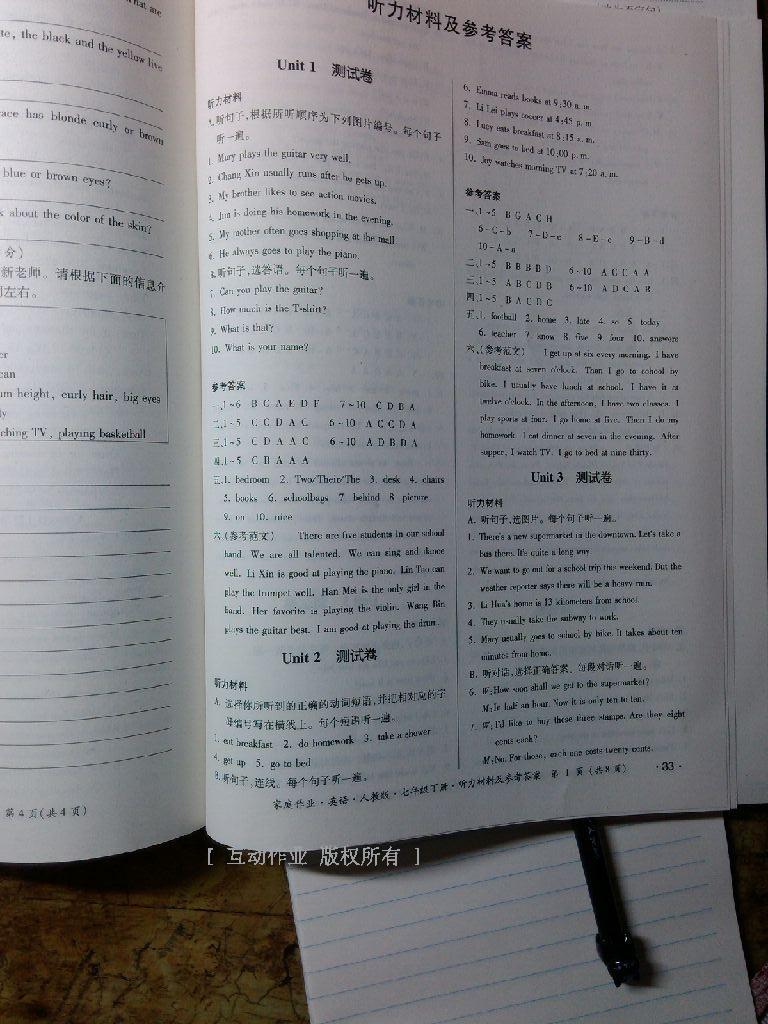 hat are
te, the black and the yellow live
ace has blonde curly or brown
blue or brown eyes?
k about the color of the skin?
分)
新老师。请根据下面的信息介
词左右。
er
can
um height, curly hair, big eyes
ly
ching TV, playing basketball
第 4 页(共 4 页)
听力材料及参考答案
Unit 1 测试卷
听力材料
A.听句子,根据所听顺序为下列图片编号。每个句子
听一遍。
1. Mary plays the guitar very well.
2. Chang Xin usually runs after he gets up.
3. My brother likes to see action movies.
4. Jim is doing his homework in the evening.
5. My mother often goes shopping at the mall
6. He always goes to play the piano.
B.听句子,选答语。每个句子听一遍。
7. Can you play the guitar?
8. How much is the T-shirt?
9. What is that?
10. What is your name?
参考答案
一、1~6 B C A E D F 7~10 C D B A
二、1~5 C C D A C 6~10 A C C D A
三、1~5 C D A A C 6~10 A D B D A
四、1~5 C B A A A
五、1. bedroom 2. Two/Their/The 3. desk 4. chairs
5. books 6. schoolbags 7. behind 8. picture
9. on 10. nice
六、(参考范文) There are five students in our school
band. We are all talented. We can sing and dance
well. Li Xin is good at playing the piano. Lin Tao can
play the trumpet well. Han Mei is the only girl in the
band. Her favorite is playing the violin. Wang Bin
plays the guitar best. I am good at playing the drum.
Unit 2 测试卷
听力材料
A. 选择你所听到的正确的动词短语,并把相对应的字
母编号写在横线上。每个短语听一遍。
1. eat breakfast 2. do homework 3. take a shower
4. get up 5. go to bed
B.听句子,连线。每个句子听一遍。
6. Emma reads books at 9:30 a. m.
7. Li Lei plays soccer at 4:45 p. m
8. Lucy eats breakfast at 8:15 a. m.
9. Sam goes to bed at 10:00 p. m.
10. Joy watches morning TV at 7:20 a. m.
参考答案
一、1~5 B G A C H
6-C-b 7-D-e 8-E-c 9-B-d
10-A-a
二、1~5 B B B B D 6~10 A C C A A
三、1~5 A B C D B 6~10 A D C A B
四、1~5 B A C D C
五、1. football 2. home 3. late 4. so 5. today
6. teacher 7. snow 8. five 9. four 10. answers
六、(参考范文) I get up at six every morning. I have
breakfast at seven o'clock. Then I go to school by
bike. I usually have lunch at school. I have it at
twelve o'clock. In the afternoon, I have two classes. I
play sports at four. I go home at five. Then I do my
homework. I eat dinner at seven in the evening. After
supper, I watch TV. I go to bed at nine thirty.
Unit 3 测试卷
听力材料
A. 听句子,选图片。每个句子听一遍。
1. There's a new supermarket in the downtown. Let's take a
bus there. It's quite a long way.
2. We want to go out for a school trip this weekend. But the
weather reporter says there will be a heavy rain.
3. Li Hua's home is 13 kilometers from school.
4. They usually take the subway to work.
5. Mary usually goes to school by bike. It takes about ten
minutes from home.
B. 听对话,选择正确答案。每段对话听一遍。
6. W:How soon shall we get to the supermarket?
M:In half an hour. Now it is only ten to ten.
7. W:I'd like to buy these three stamps. Are they eight
cents each?
M:No. For those, each one costs twenty cents.
家庭作业·英语·人教版·七年级下册·听力材料及参考答案 第 1 页(共 8 页) ·33·
[ 互动作业 版权所有 ]